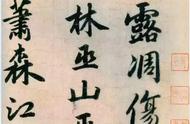 露凋傷
林巫山巫
蕭森江